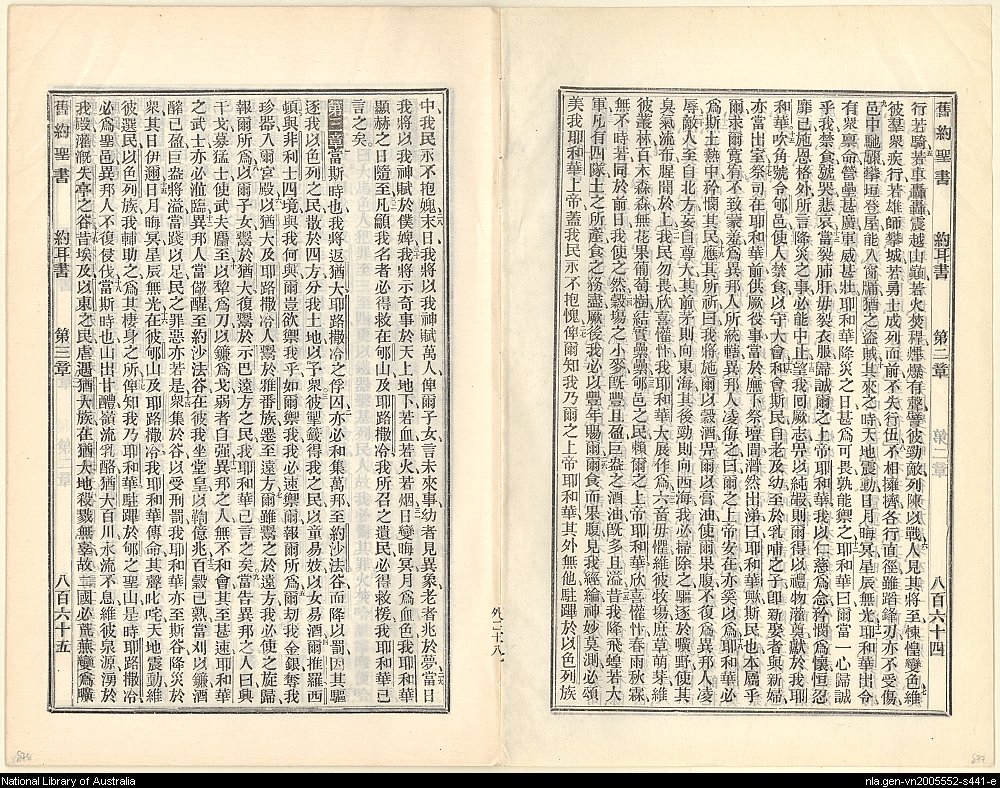 舊約聖書 約耳書 第二章 八百六十四
行若騎若車轟轟震越山巔若火焚稈爆爆有聲譬彼勁敵列陳以戰人見其將至悚惶變色維
彼羣衆疾行若雄師攀城若勇士成列而前不失行伍不相擁擠各行直徑雖踣鋒刃亦不受傷
邑中馳驟攀垣登屋能入窗牖猶之盜賊其來之時天地震動日月晦冥星辰無光耶和華出令
有衆稟命營壘甚廣軍威甚壯耶和華降災之日甚爲可畏孰能禦之耶和華曰爾當一心歸誠
乎我禁食號哭悲哀當裂肺肝毋裂衣服歸誠爾之上帝耶和華我以仁慈爲念矜憫爲懷恒忍
靡已施恩格外所言降災之事必能中止望我回厥志畀以純嘏則爾得以禮物灌奠獻於我耶
和華吹角於郇號令邑民使人禁食以守大會和會斯民自老及幼至於乳哺之子即新娶者與新婦
亦當出室祭司在耶和華前供厥役事當於廡下祭壇間潸然出涕曰耶和華歟斯民也本屬乎
爾求爾寬宥不致蒙羞爲異邦人所統轄異邦人凌侮之曰爾之上帝安在亦奚以爲耶和華必
爲斯土熱中矜憫其民應其所祈曰我將施爾以穀酒畀爾以膏油使爾果腹不復爲異邦人凌
辱敵人至自北方妄自尊大其前茅則向東海其後勁則向西海我必掃除之驅逐於曠野使其
臭氣流布腥聞於上我民勿畏欣喜懽忭我耶和華大展作爲六畜毋懼維彼牧場庶草萌芽維
彼叢林百木森森無花果葡萄樹結實纍纍郇邑之民賴爾之上帝耶和華欣喜懽忭春雨秋霖
無不時若同於前日我使之然穀場之小麥旣豐且盈巨盎之酒油旣多且溢昔我降飛蝗若大
軍凡有四隊土之所產食之務盡厥後我必以豐年賜爾爾食而果腹見我經綸神妙莫測必頌
美我耶和華上帝蓋我民永不抱愧俾爾知我乃爾之上帝耶和華其外無他駐蹕於以色列族
中我民永不抱媿末日我將以我神賦萬人俾爾子女言未來事幼者見異象老者兆於夢當日
我將以我神賦於僕婢我將示奇事於天上地下若血若火若烟日變晦冥月爲血色我耶和華
顯赫之日隨至凡籲我名者必得救在郇山及耶路撒冷我所召之遺民必得救援我耶和華已
言之矣
第三章當斯時也我將返猶大耶路撒冷之俘囚亦必和集萬邦至約沙法谷而降以罰因其驅
逐我以色列之民散於四方分我土地以予衆彼掣籤得我之民以童易妓以女易酒爾推羅西
頓與非利士四境與我何與爾豈欲禦我乎如爾禦我我必速禦爾報爾所爲爾刧我金銀奪我
珍器入爾宮殿以猶大及耶路撒冷人鬻於雅番族遷至遠方爾雖鬻之於遠方我必使之旋歸
報爾所爲以爾子女鬻於猶大復鬻於示巴遠方之民我耶和華已言之矣當告異邦之人曰興
干戈募猛士使武夫麕至以犂爲刀以鐮爲戈弱者自强異邦之人無不和會其至甚速耶和華
之武士亦必涖臨異邦人當儆醒至約沙法谷在彼我自坐堂皇以鞫億兆百穀已熟當刈以鐮酒
醡已盈巨盎將溢當踐以足民之罪惡亦若是衆集於谷以受刑罰我耶和華亦至斯谷降災於
衆其日伊邇日月晦冥星辰無光在彼郇山及耶路撒冷我耶和華傳命其聲叱咤天地震動維
彼選民以色列族我輔助之爲其棲身之所俾知我乃耶和華駐蹕於郇之聖山是時耶路撒冷
必爲聖邑異邦人不復侵伐當斯時也山出甘醴嶺流乳酪猶大百川水流不息維彼泉源湧於
我殿灌漑失亭之谷昔埃及以東之民虐遇猶大族在猶大地殺戮無辜故二國必荒蕪變爲曠
舊約聖書 約耳書 第三章 八百六十五
National Library of Australia
nla.gen-vn2005552-s441-e